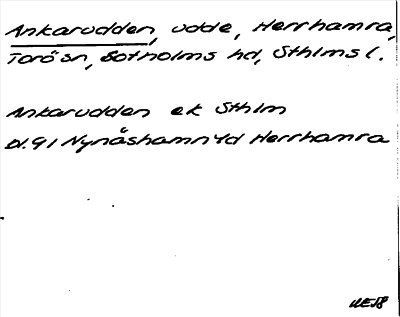 Ankarudden, udde, Herrhamra,
Torö sn, Sotholms hd, Sthlms l.
Ankarudden ek Sthlm
bl. 91 Nynäshamn 4d Herrhamra